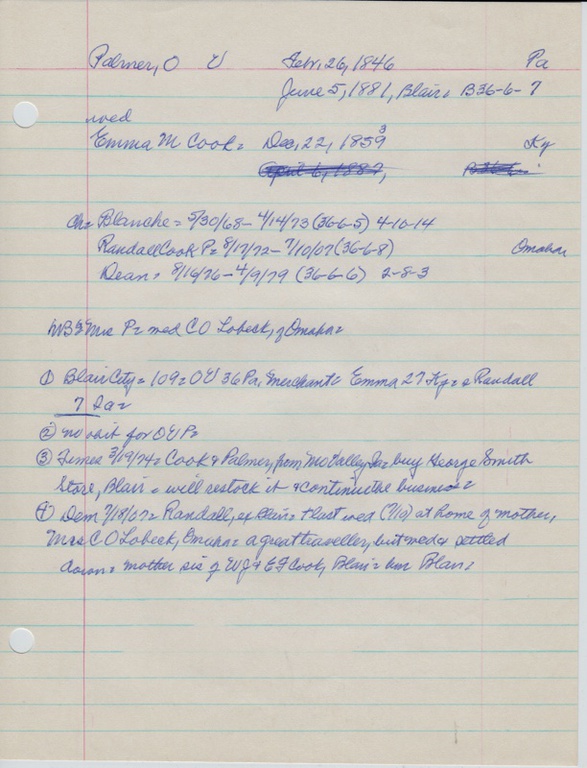 Palmer, O U Febr. 26, 1846 Pa
June 5, 1881, Blair= B36-6-7
wed
Emma M Cook= Dec, 22, 1859 3 Ky
April 6, 1887,
ch= Blanche= 5/30/68-4/14/73 (36-6-5) 4-10-14
Randall Cook P= 8/17/72-7/10/07 (36-6-8) Omaha
Dean= 8/16/76-4/9/79 (36-6-6) 2-8-3
NB= Mrs P= med C O Lobeck, of Omaha=
① Blair City= 109= O U 36 Pa, merchant= Emma 27 Ky= & Randall
7 Ia=
② no obit for O U P=
③ Times 3/19/74= Cook & Palmer, from Mo Valley, Ia= buy George Smith
Store, Blair= will restock it & continue the business=
④ Dem 7/18/07= Randall, ex Blair= last wed (7/10) at home of mother,
Mrs C O Lobeck, Omaha= a great traveller, but med & settled
down= mother sis of W J & E F Cook, Blair= bur Blair=